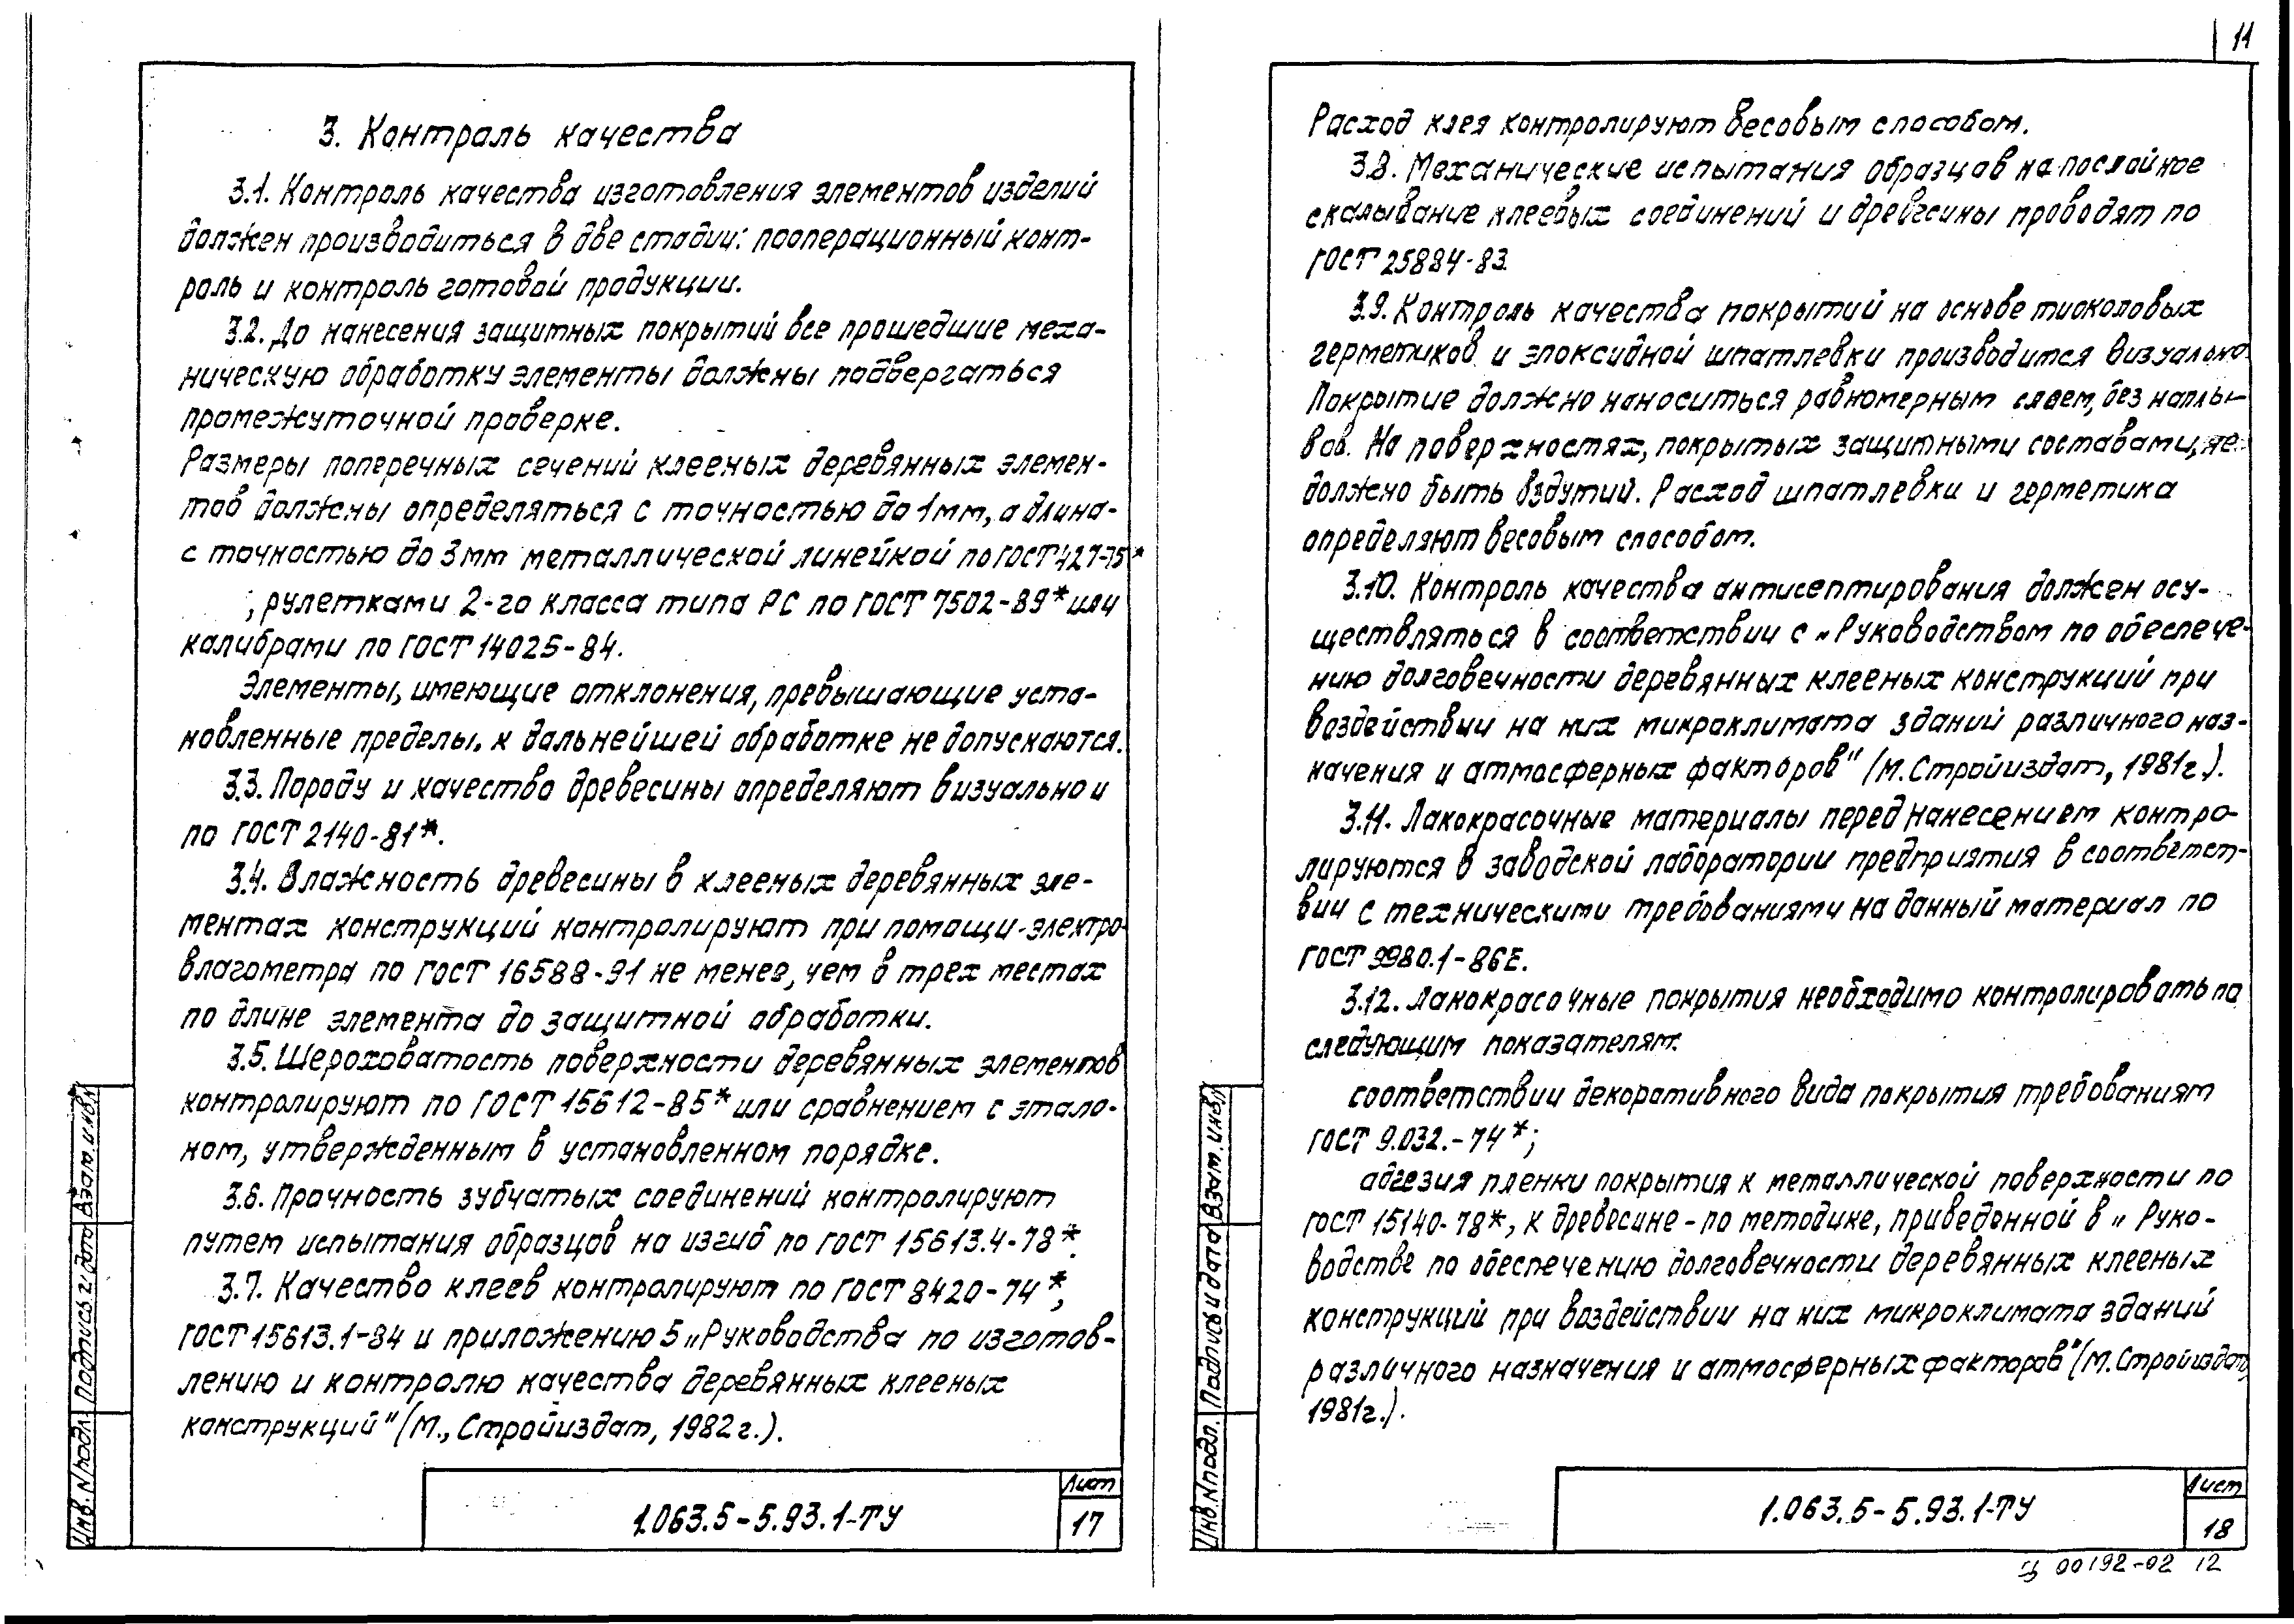 3. Контроль качества
3.1. Контроль качества изготовления элементов изделий
должен производиться в две стадии: пооперационный конт-
роль и контроль готовой продукции.
3.2. До нанесения защитных покрытий все прошедшие меха-
ническую обработку элементы должны подвергаться
промежуточной проверке.
Размеры поперечных сечений клееных деревянных элемен-
тов должны определяться с точностью до 1мм, а длина-
с точностью до 3мм металлической линейкой по ГОСТ 427-75*
; рулетками 2-го класса типа РС по ГОСТ 7502-89* или
калибрами по ГОСТ 14025-84.
Элементы, имеющие отклонения, превышающие уста-
новленные пределы, к дальнейшей обработке не допускаются.
3.3. Породу и качество древесины определяют визуально и
по ГОСТ 2140-81*.
3.4. Влажность древесины в клееных деревянных эле-
ментах конструкций контролируют при помощи электро-
влагометра по ГОСТ 16588-91 не менее, чем в трех местах
по длине элемента до защитной обработки.
3.5. Шероховатость поверхности деревянных элементов
контролируют по ГОСТ 15612-85* или сравнением с этало-
ном, утвержденным в установленном порядке.
3.6. Прочность зубчатых соединений контролируют
путем испытания образцов на изгиб по ГОСТ 15613.4-78*.
3.7. Качество клеев контролируют по ГОСТ 8420-74*,
ГОСТ 15613.1-84 и приложению 5 „Руководства по изготов-
лению и контролю качества деревянных клееных
конструкций" (М., Стройиздат, 1982 г.).
Инв. N подл.
Подпись и дата
Взам. инв. N
1.063.5-5.93.1-ТУ
Лист
17
11
Расход клея контролируют весовым способом.
3.8. Механические испытания образцов на послойное
скалывание клеевых соединений и древесины проводят по
ГОСТ 25884-83.
3.9. Контроль качества покрытий на основе тиоколовых
герметиков и эпоксидной шпатлевки производится визуально.
Покрытие должно наноситься равномерным слоем, без наплы-
вов. На поверхностях, покрытых защитными составами, не
должно быть вздутий. Расход шпатлевки и герметика
определяют весовым способом.
3.10. Контроль качества антисептирования должен осу-
ществляться в соответствии с „Руководством по обеспече-
нию долговечности деревянных клееных конструкций при
воздействии на них микроклимата зданий различного наз-
начения и атмосферных факторов" (М. Стройиздат, 1981г.).
3.11. Лакокрасочные материалы перед нанесением контро-
лируются в заводской лаборатории предприятия в соответст-
вии с техническими требованиями на данный материал по
ГОСТ 9980.1-86Е.
3.12. Лакокрасочные покрытия необходимо контролировать по
следующим показателям:
соответствии декоративного вида покрытия требованиям
ГОСТ 9.032.-74*;
адгезия пленки покрытия к металлической поверхности по
ГОСТ 15140-78*, к древесине - по методике, приведенной в „Руко-
водстве по обеспечению долговечности деревянных клееных
конструкций при воздействии на них микроклимата зданий
различного назначения и атмосферных факторов" (М. Стройиздат,
1981г.).
Инв. N подл.
Подпись и дата
Взам. инв. N
1.063.5-5.93.1-ТУ
Лист
18
Ц 00192-02 12